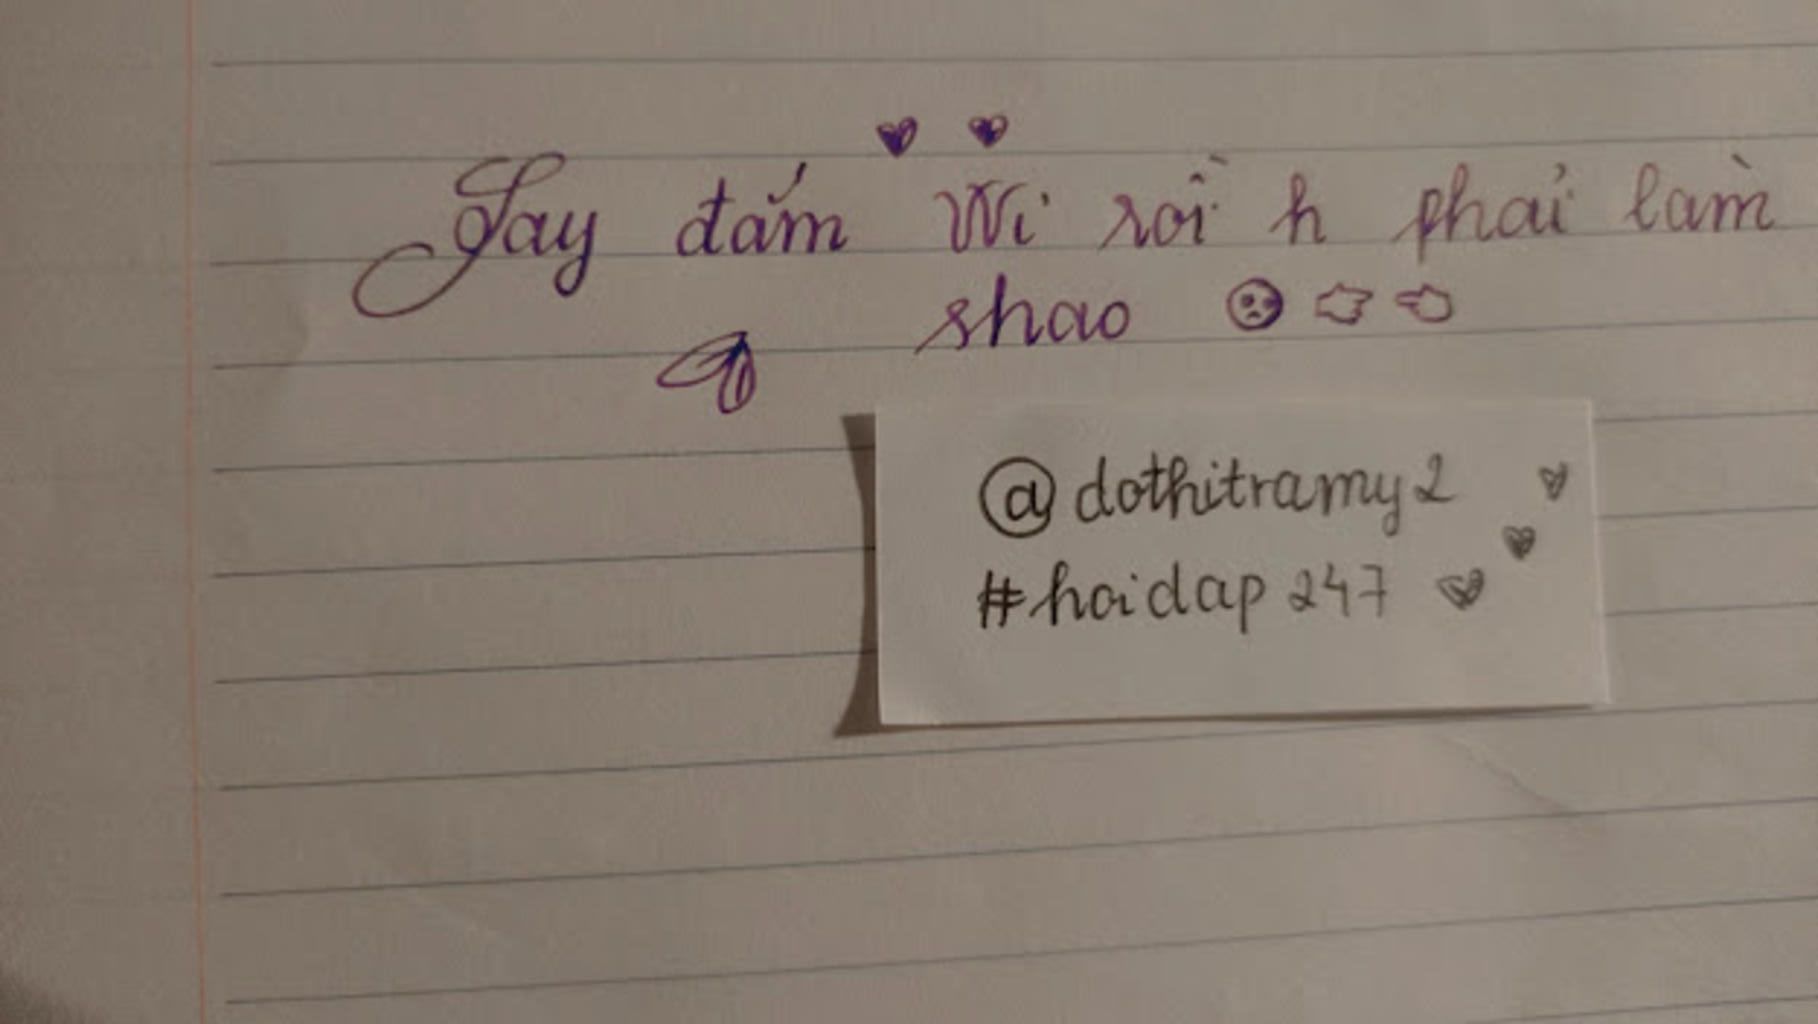 Say đắm Wi rồi h phải làm
shao 🥺👉👈
@dothitramy2
#hoidap247